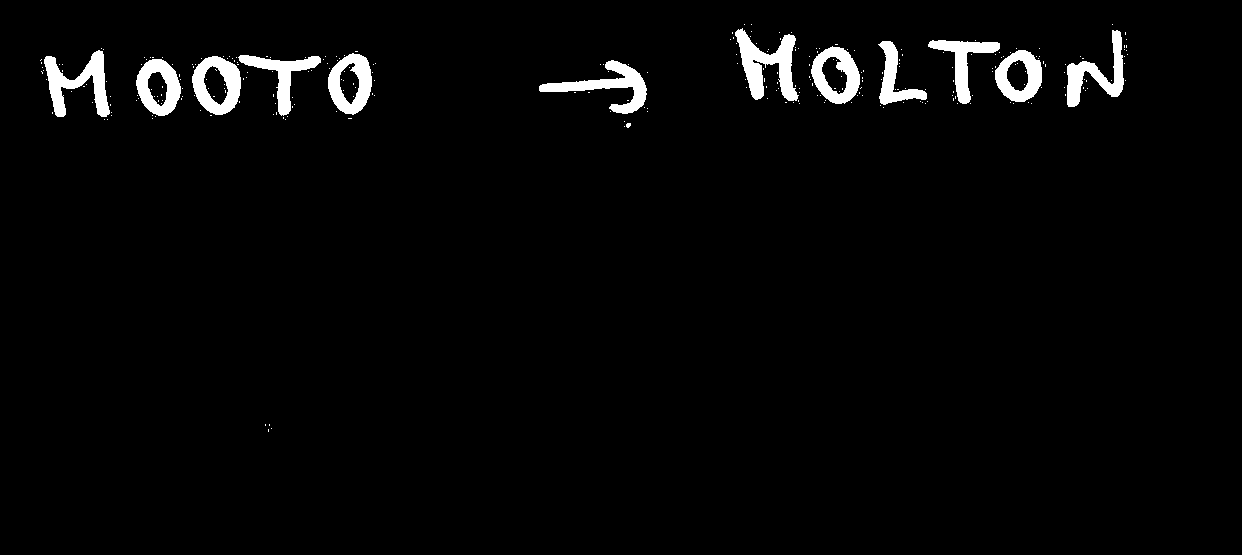 MOOTO → MOLTON